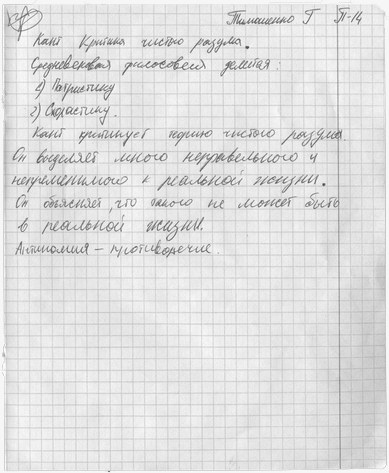 Тимошенко Г П-14
Кант Критика чистого разума.
Средневековая философия делится:
1) Патристику
2) Схоластику.
Кант критикует теорию чистого разума.
Он выделяет много неправельного и
неприменимого к реальной жизни.
Он объясняет, что такого не может быть
в реальной жизни.
Антиномия – противоречие.